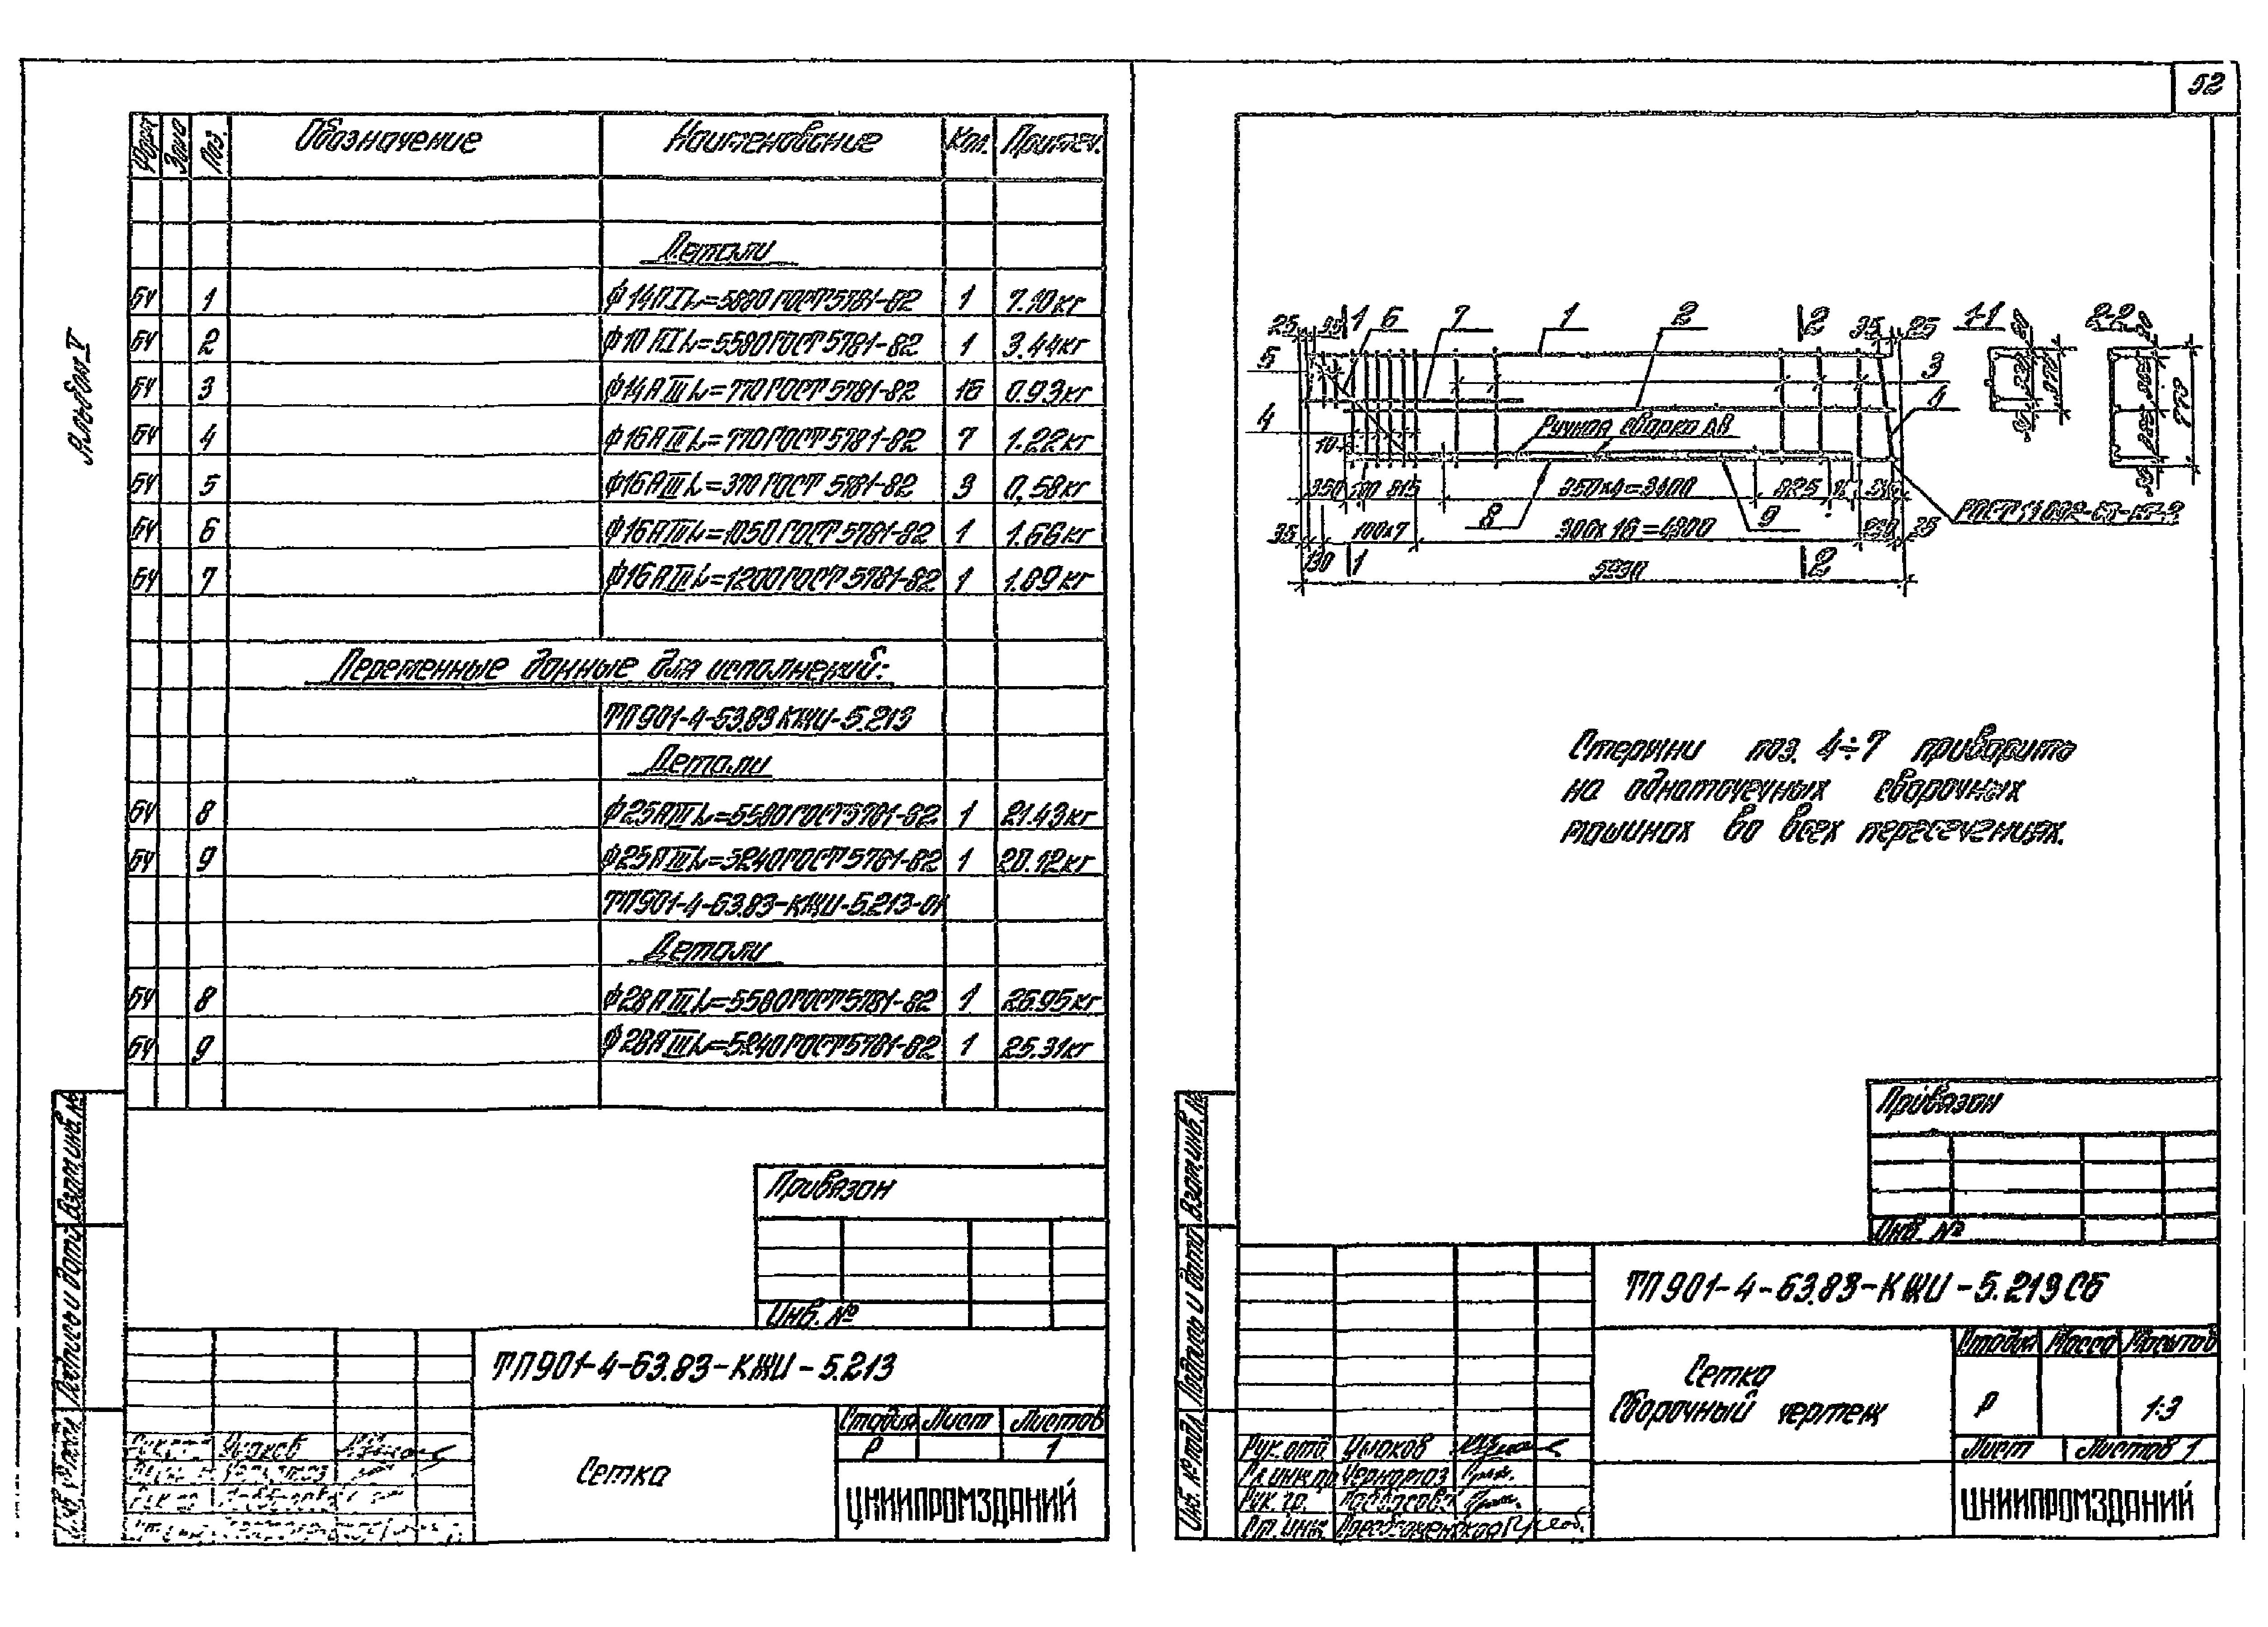 52
Альбом V
Форм Зона Поз. Обозначение Наименование Кол. Примеч.
Детали
БЧ 1 ф14АI L=5880 ГОСТ 5781-82 1 7.10кг
БЧ 2 ф10АI L=5580 ГОСТ 5781-82 1 3.44кг
БЧ 3 ф14АIII L=770 ГОСТ 5781-82 16 0.93кг
БЧ 4 ф16АIII L=770 ГОСТ 5781-82 7 1.22кг
БЧ 5 ф16АIII L=370 ГОСТ 5781-82 3 0.58кг
БЧ 6 ф16АIII L=1050 ГОСТ 5781-82 1 1.66кг
БЧ 7 ф16АIII L=1200 ГОСТ 5781-82 1 1.89кг
Переменные данные для исполнений:
ТП901-4-63.83 КЖИ-5.213
Детали
БЧ 8 ф25АIII L=5580 ГОСТ 5781-82 1 21.43кг
БЧ 9 ф25АIII L=5240 ГОСТ 5781-82 1 20.12кг
ТП901-4-63.83-КЖИ-5.213-01
Детали
БЧ 8 ф28АIII L=5580 ГОСТ 5781-82 1 26.95кг
БЧ 9 ф28АIII L=5240 ГОСТ 5781-82 1 25.31кг
Привязан
Инв. №
ТП901-4-63.83-КЖИ-5.213
Стадия Лист Листов
Р 1
Сетка
ЦНИИПРОМЗДАНИЙ
Подпись и дата Взам.инв.№
25 35 1 6 7 1 2 2 35 25 1-1 2-2
5 3
4 4
10 Ручная сварка дв.
350 100 815 850х4=3400 825
8 9
35 100х7 300х16=4800 25
130 1 5930 2
Стержни поз. 4÷7 приварить
на одноточечных сварочных
машинах во всех пересечениях.
Привязан
Инв. №
ТП901-4-63.83-КЖИ-5.213СБ
Сетка
Сборочный чертеж
Стадия Масса Масштаб
Р 1:3
Лист Листов 1
ЦНИИПРОМЗДАНИЙ
Рук.отд.
Гл.инж.пр.
Рук. гр.
Ст. инж. Преображенская
Инв. № подл. Подпись и дата Взам.инв.№